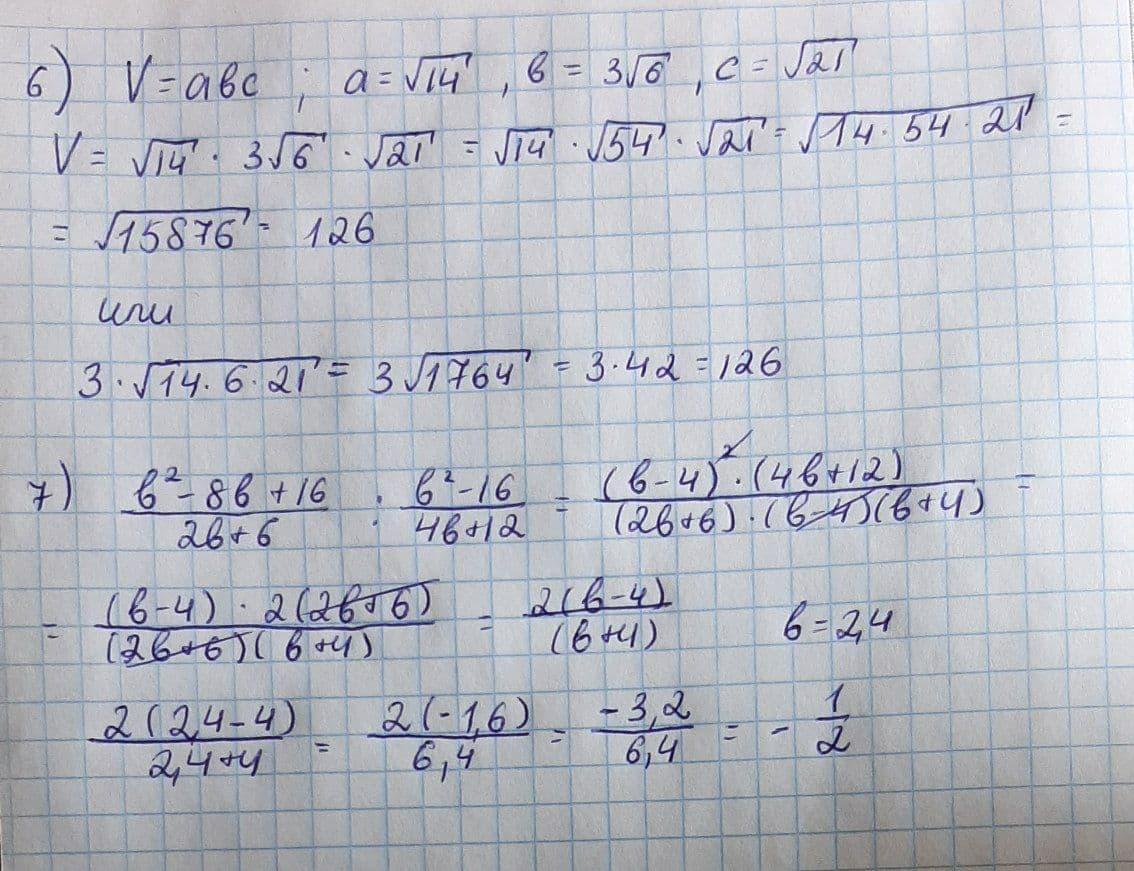 6) V = abc ; a = √14 , b = 3√6 , c = √21
V = √14 · 3√6 · √21 = √14 · √54 · √21 = √(14 · 54 · 21) =
= √15876 = 126
или
3 · √(14 · 6 · 21) = 3√1764 = 3 · 42 = 126
7) (b² - 8b + 16)/(2b + 6) : (b² - 16)/(4b + 12) = ((b - 4)² · (4b + 12))/((2b + 6) · (b - 4)(b + 4)) =
= ((b - 4) · 2(2b + 6))/((2b + 6)(b + 4)) = 2(b - 4)/(b + 4) b = 2,4
2(2,4 - 4)/(2,4 + 4) = 2(-1,6)/6,4 = -3,2/6,4 = - 1/2